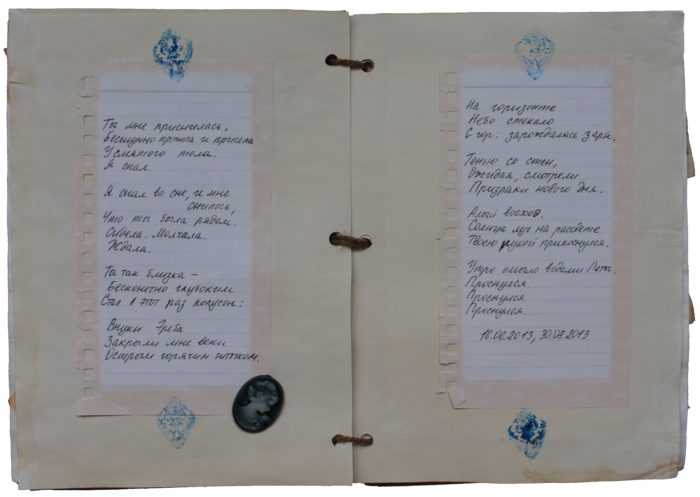 Ты мне приснилась.
Бесшумно пришла и присела
У смятого тела.
Я спал.
Я спал во сне, и мне
снилось,
Что ты была рядом.
Сидела. Молчала.
Ждала.
Ты так близка –
Бесконечно глубоким
Стал в этот раз сон:
Внуки Эреба
Закрыли мне веки
Острым горячим
На горизонте
Небо стекало
С гор: зарождалась заря.
Тенью со стен,
Ожидая, смотрели
Призраки нового дня.
Алый восход.
Солнца луч на рассвете
Твоею рукой прикоснулся.
Утро омыло водами Леты.
Проснулся.
Проснулся
Проснулся.
16.06.2013, 30.08.2013